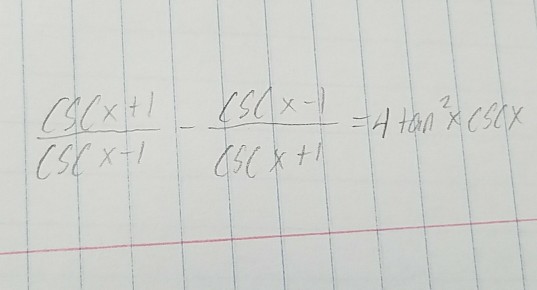 (csc x + 1)/(csc x - 1) - (csc x - 1)/(csc x + 1) = 4 tan² x csc x